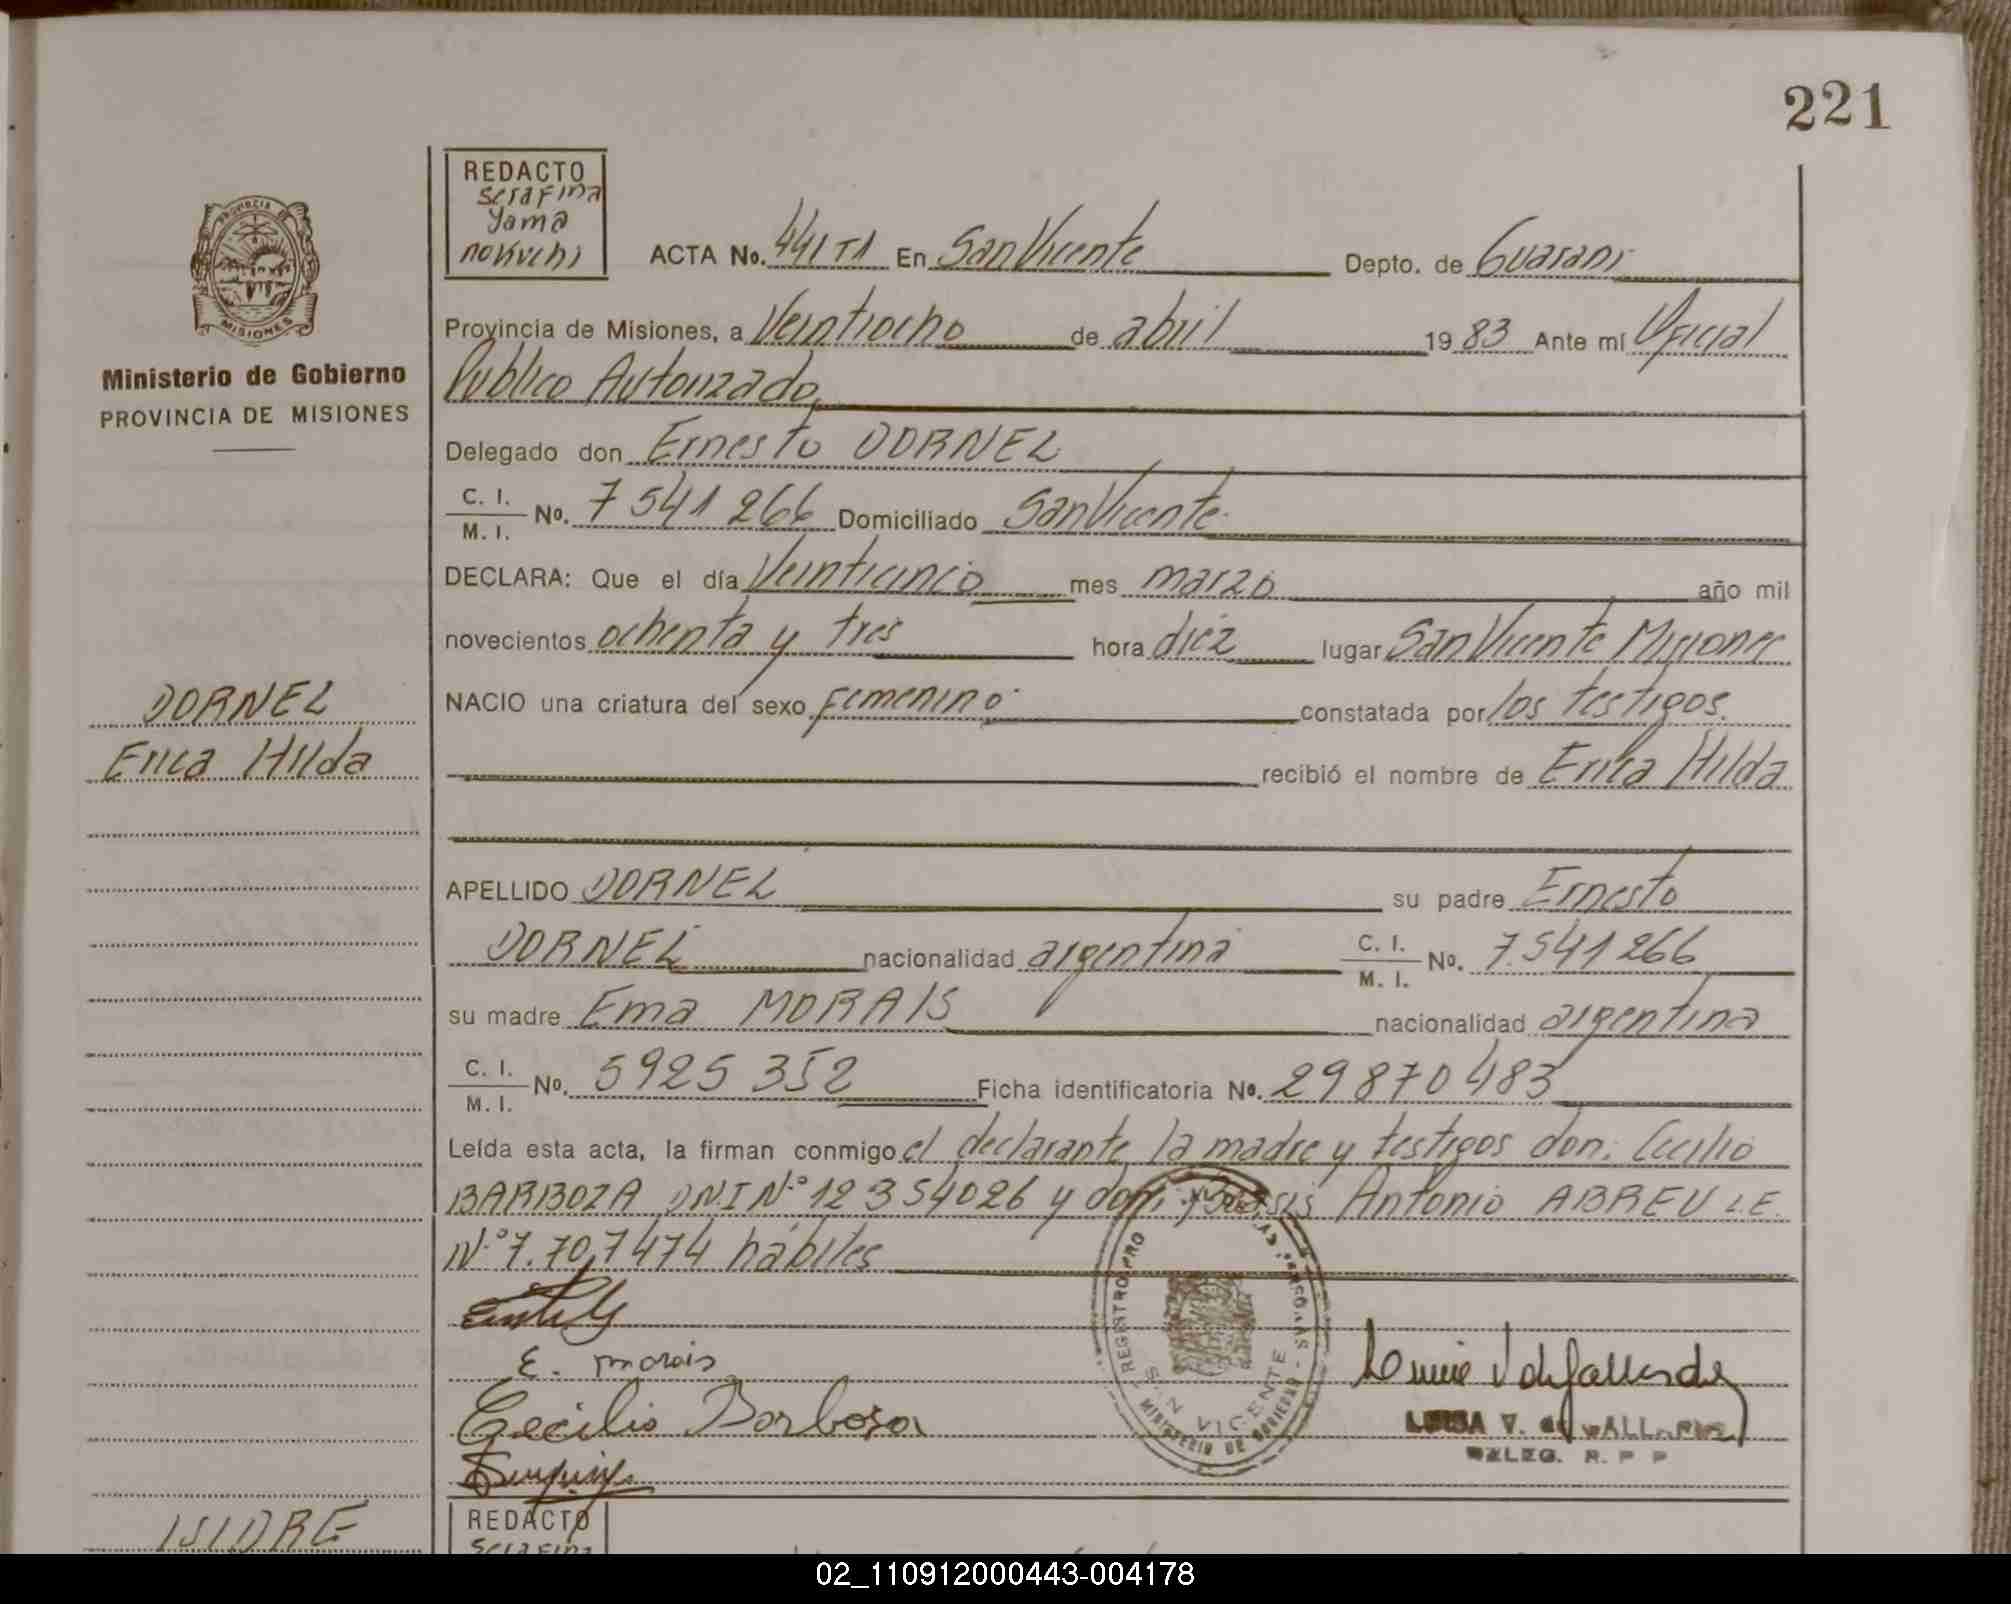 221
REDACTO
Serafina
Yama
nokuchi
PROVINCIA DE
MISIONES
Ministerio de Gobierno
PROVINCIA DE MISIONES
ACTA No. 441 T1 En San Vicente Depto. de Guarani
Provincia de Misiones, a Veintiocho de abril 1983 Ante mí Oficial
Publico Autorizado
Delegado don Ernesto DORNEL
C. I. / M. I. No. 7541266 Domiciliado San Vicente
DECLARA: Que el día Veinticinco mes marzo año mil
novecientos ochenta y tres hora diez lugar San Vicente Misiones
NACIO una criatura del sexo femenino constatada por los testigos.
DORNEL
Erica Hilda
recibió el nombre de Erica Hilda
APELLIDO DORNEL su padre Ernesto
DORNEL nacionalidad argentina C. I. / M. I. No. 7.541266
su madre Ema MORAIS nacionalidad argentina
C. I. / M. I. No. 5925352 Ficha identificatoria No. 29870483
Leída esta acta, la firman conmigo el declarante, la madre y testigos don: Cecilio
BARBOZA D.N.I N.º 12354026 y don: Antonio ABREU L.E.
N.º 7.707474 hábiles
E. morais
Cecilio Barbosa
REGISTRO PRO
SAN VICENTE
MINISTERIO DE GOBIERNO
LUISA V. de
DELEG. R. P P
ISIDRE
REDACTO
Serafina
02_110912000443-004178